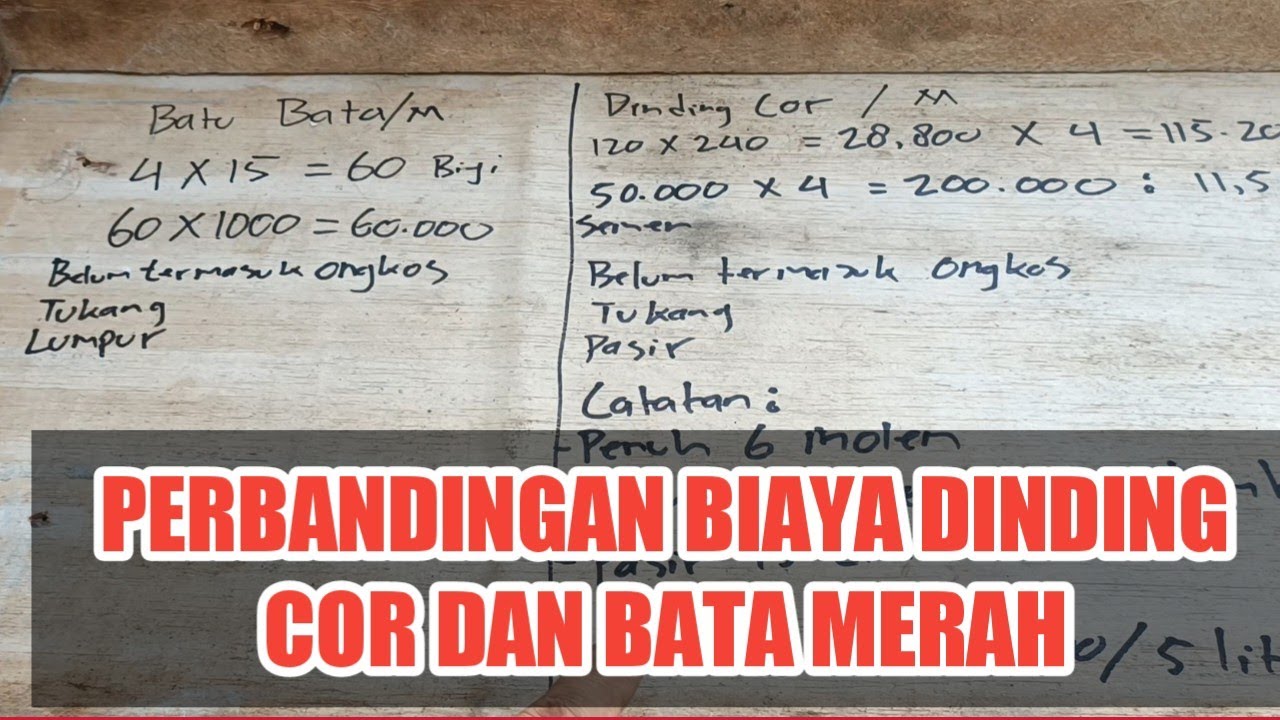 Batu Bata/M
4 X 15 = 60 Biji
60 X 1000 = 60.000
Belum termasuk ongkos
Tukang
Lumpur
Dinding Cor / M
120 X 240 = 28,800 X 4 = 115.20
50.000 X 4 = 200.000 : 11,5
Semen
Belum termasuk ongkos
Tukang
Pasir
Catatan :
- Penuh 6 molen
PERBANDINGAN BIAYA DINDING
COR DAN BATA MERAH
/5 lit